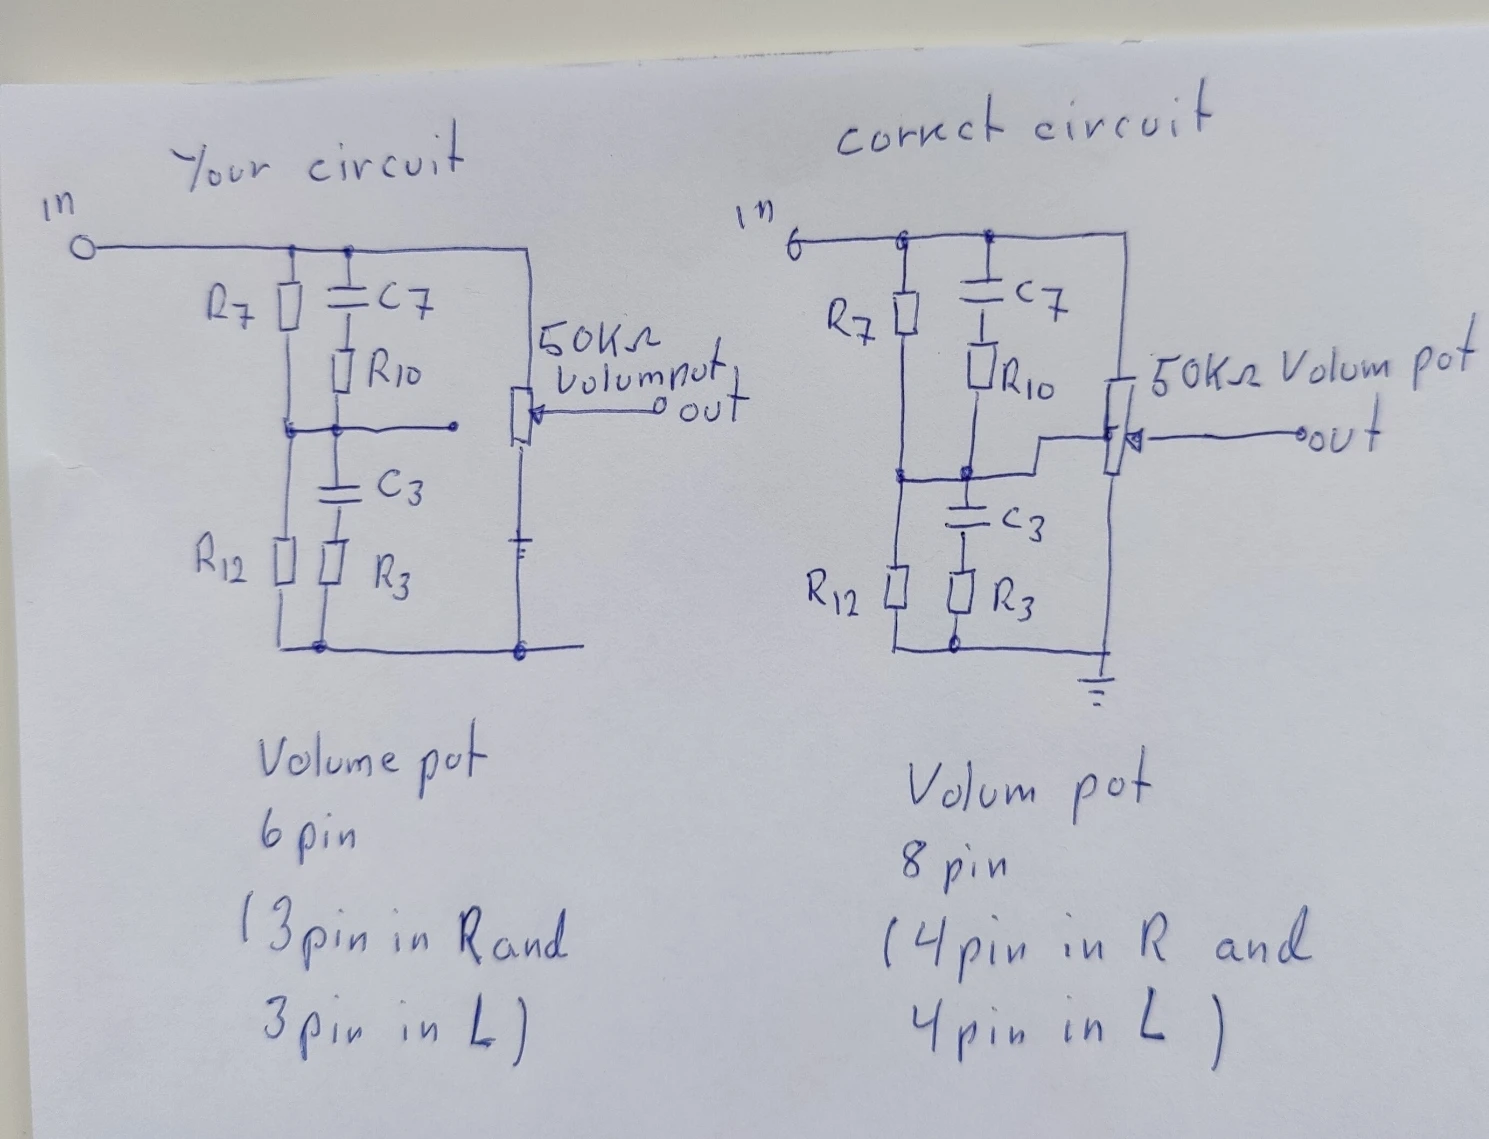 Your circuit
in
R7
C7
R10
50KΩ
Volumpot
out
C3
R12
R3
Volume pot
6 pin
(3pin in R and
3pin in L)
correct circuit
in
R7
C7
R10
50KΩ Volum pot
out
C3
R12
R3
Volum pot
8 pin
(4pin in R and
4pin in L)